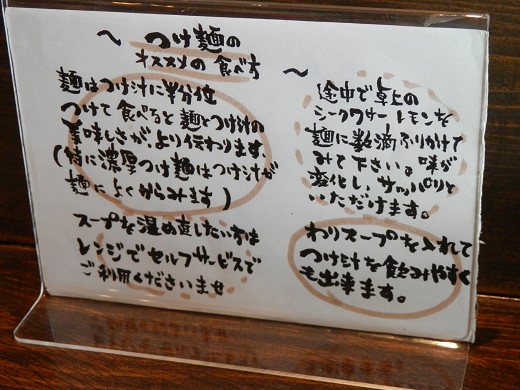 ～ つけ麺の
オススメの食べ方 ～
麺はつけ汁に半分位
つけて食べると麺とつけ汁の
美味しさが、より伝わります、
(特に濃厚つけ麺はつけ汁が
麺によくからみます)
スープを温め直したい方は
レンジでセルフサービスで
ご利用くださいませ
途中で卓上の
シークワサーレモンを
麺に数滴ふりかけて
みて下さい。味が
変化し、サッパリと
いただけます。
わりスープを入れて
つけ汁を飲みやすく
も出来ます。